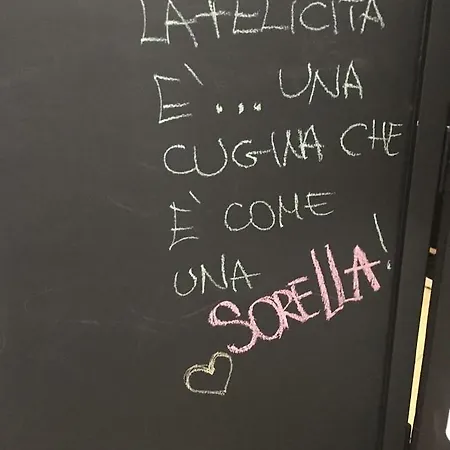 LA FELICITÀ
È... UNA
CUGINA CHE
È COME
UNA
SORELLA!